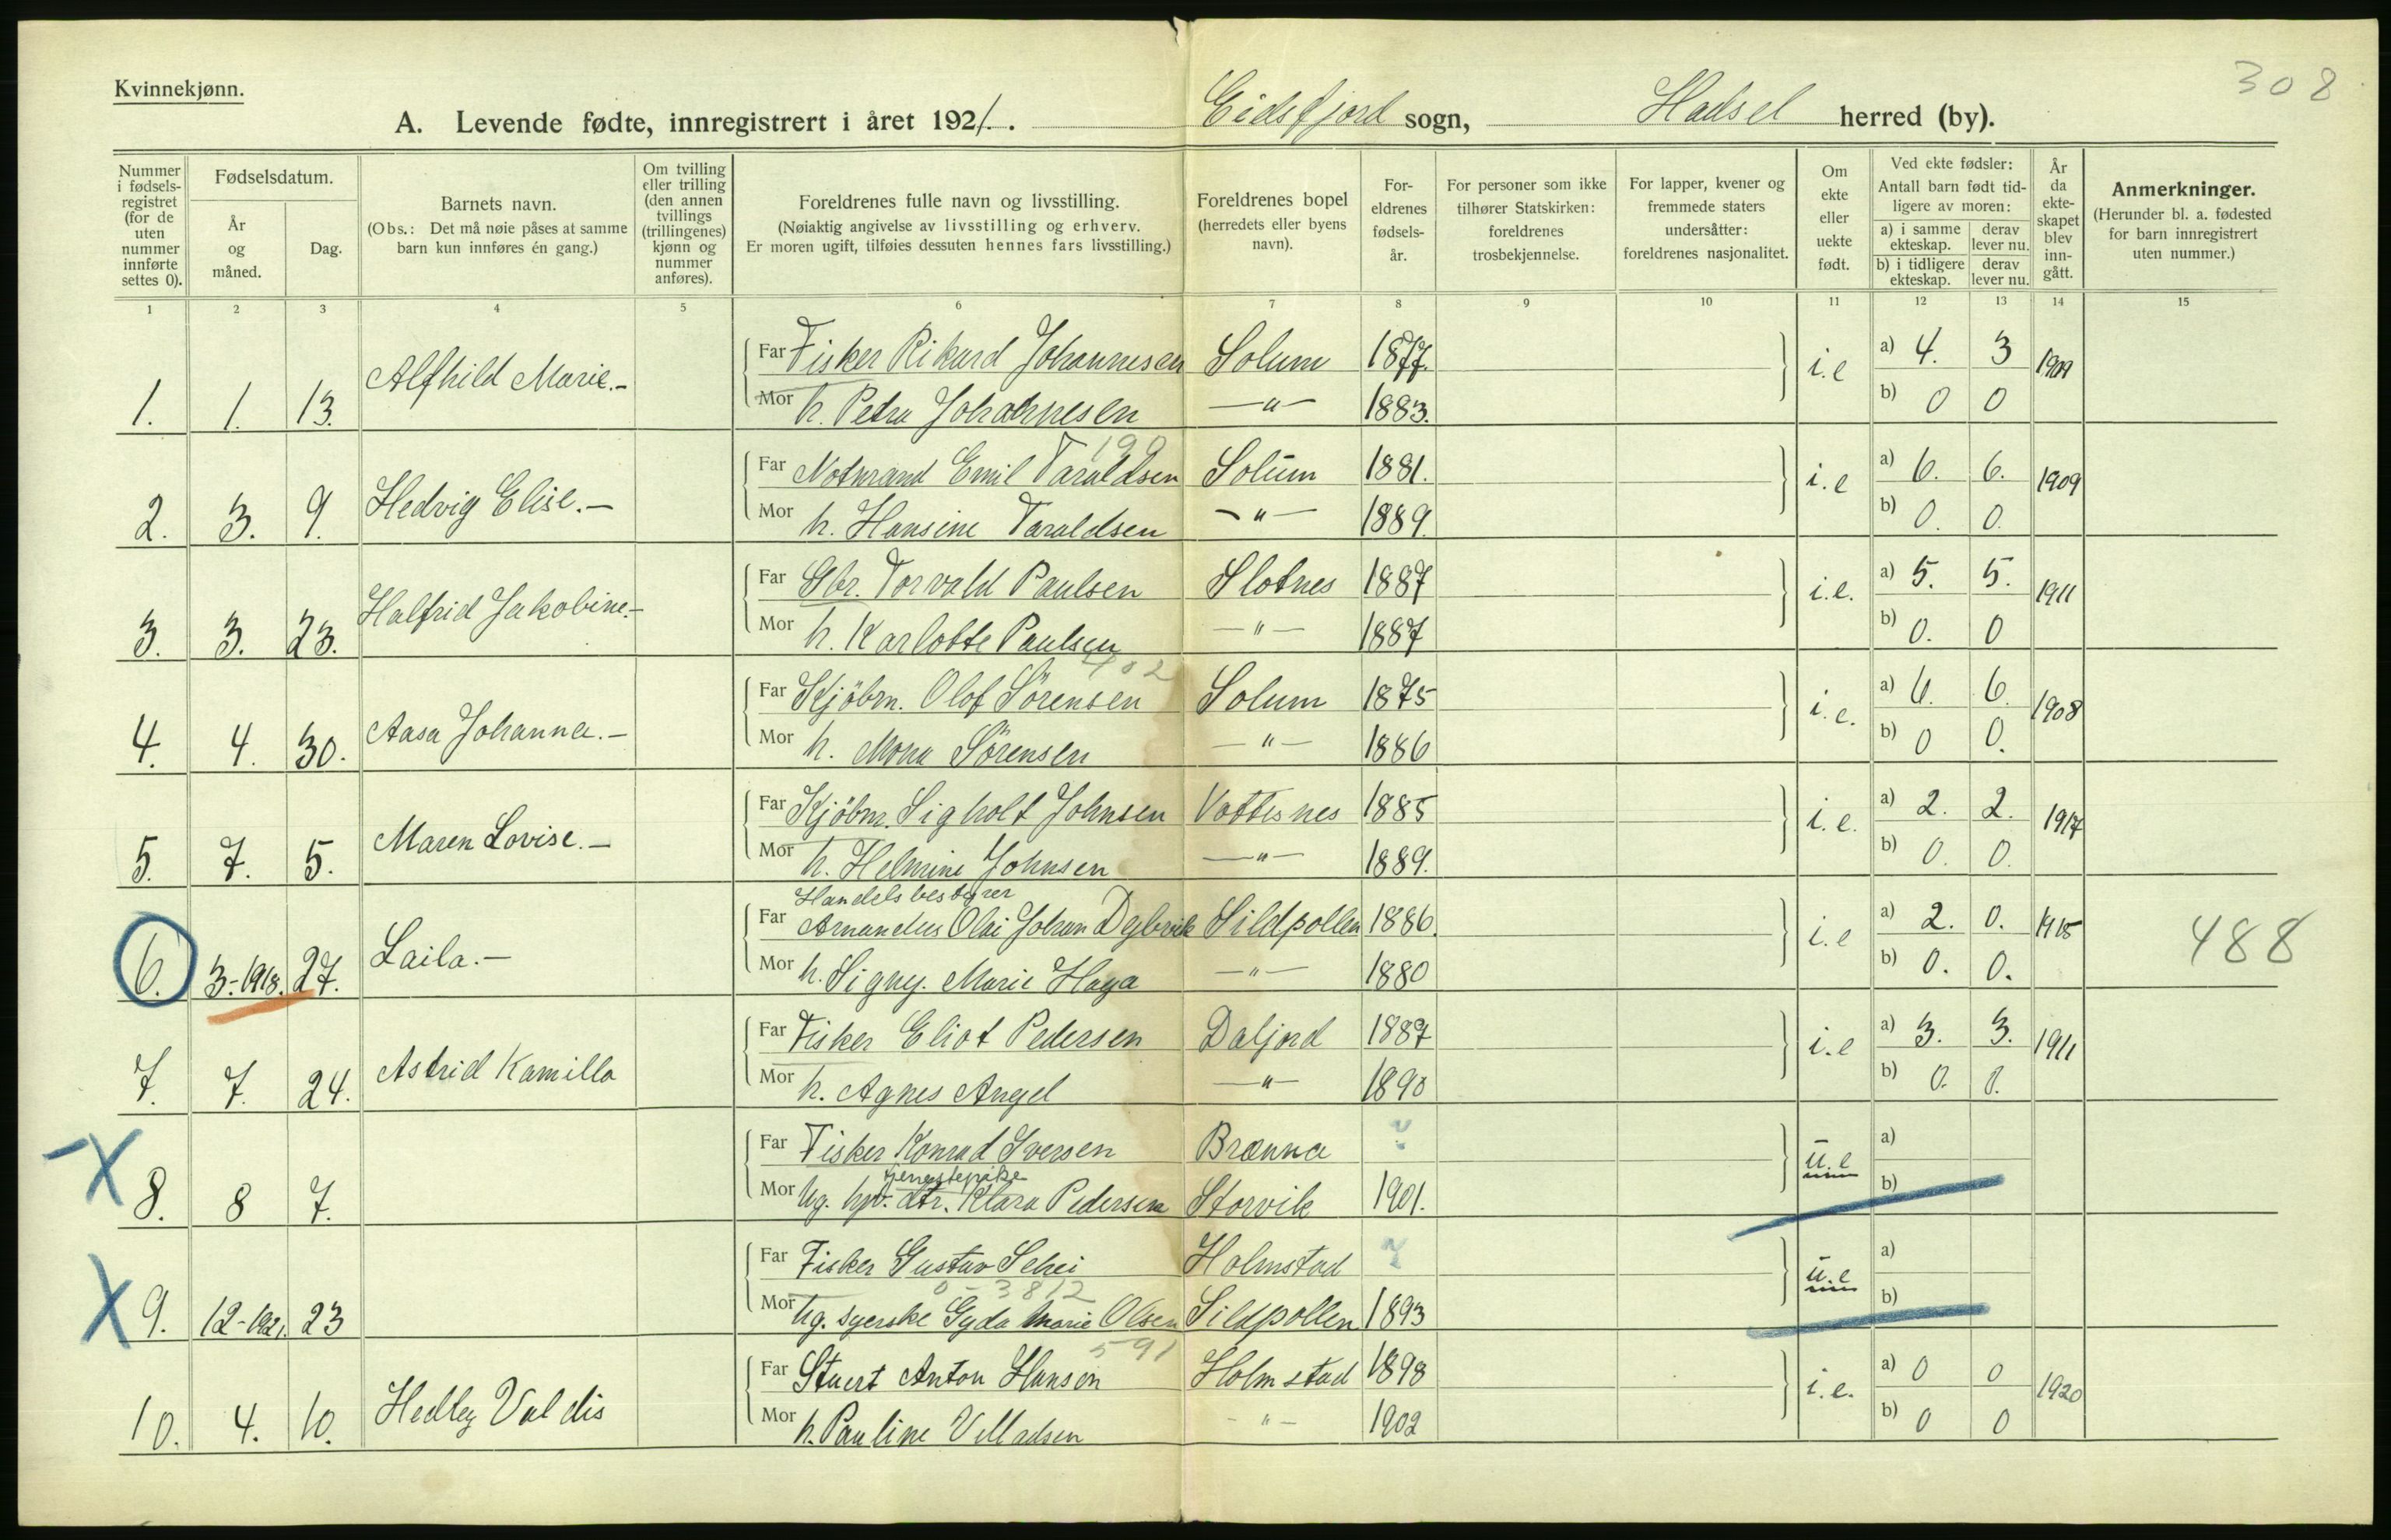 308
Kvinnekjønn.
A. Levende fødte, innregistrert i året 1921. Eidsfjord sogn, Hadsel herred (by).
Nummer i fødsels-registret (for de uten nummer innførte settes 0).
Fødselsdatum.
År og måned.
Dag.
Barnets navn.
(Obs.: Det må nøie påses at samme barn kun innføres én gang.)
Om tvilling eller trilling (den annen tvillings (trillingenes) kjønn og nummer anføres).
Foreldrenes fulle navn og livsstilling.
(Nøiaktig angivelse av livsstilling og erhverv.
Er moren ugift, tilføies dessuten hennes fars livsstilling.)
Foreldrenes bopel
(herredets eller byens navn).
For-eldrenes fødsels-år.
For personer som ikke tilhører Statskirken: foreldrenes trosbekjennelse.
For lapper, kvener og fremmede staters undersåtter: foreldrenes nasjonalitet.
Om ekte eller uekte født.
Ved ekte fødsler:
Antall barn født tid-ligere av moren:
a) i samme ekteskap.
derav lever nu.
b) i tidligere ekteskap.
derav lever nu.
År da ekte-skapet blev inn-gått.
Anmerkninger.
(Herunder bl. a. fødested for barn innregistrert uten nummer.)
1 2 3 4 5 6 7 8 9 10 11 12 13 14 15
1. 1. 13. Alfhild Marie.-
Far Fisker Rikard Johannesen Solum 1877. i.e a) 4. 3 1909
Mor h. Petra Johannesen —"— 1883. b) 0 0
199
2. 3. 9. Hedvig Elise.—
Far Notmand Emil Taraldsen Solum 1881. i.e a) 6. 6. 1909
Mor h. Hansine Taraldsen —"— 1889. b) 0. 0.
3. 3. 23. Halfrid Jakobine.-
Far Gbr. Torvald Paulsen Slotnes 1887 i.e. a) 5. 5. 1911
Mor h. Karlotte Paulsen —"— 1887 b) 0. 0
402
4. 4. 30. Aasa Johanna.—
Far Kjöbm. Olof Sörensen Solum 1875 i.e. a) 6. 6. 1908
Mor h. Mona Sörensen —"— 1886 b) 0 0.
5. 7. 5. Maren Lovise.—
Far Kjöbm. Sigholt Johnsen Vottesnes 1885 i.e. a) 2. 2. 1917
Mor h. Helmine Johnsen —"— 1889. b) 0. 0.
Handelsbestyrer
6. 3.-1918. 27. Laila.—
Far Amandus Olai Johan Dybvik Sildpollen 1886. i.e a) 2. 0. 1915 488
Mor h. Signy. Marie Haga —"— 1880 b) 0. 0.
7. 7. 24. Astrid Kamilla
Far Fisker Eliot Pedersen Daljord 1887 i.e a) 3. 3. 1911
Mor h. Agnes Angel —"— 1890 b) 0. 0.
X 8. 8 7.
Far Fisker Konrad Iversen Brænna ? u.e a)
tjenestepike
Mor Ug. hpv. dtr. Klara Pedersen Storvik 1901. b)
X 9. 12-1921. 23
Far Fisker Gustav Schei Holmstad ? u.e a)
0-3812
Mor Ug. syerske Gyda Marie Olsen Sildpollen 1893 b)
591
10. 4. 10. Hedley Valdis
Far Stuert Anton Hansen Holmstad 1898 i.e. a) 0 0 1920
Mor h. Pauline Villadsen —"— 1902 b) 0 0